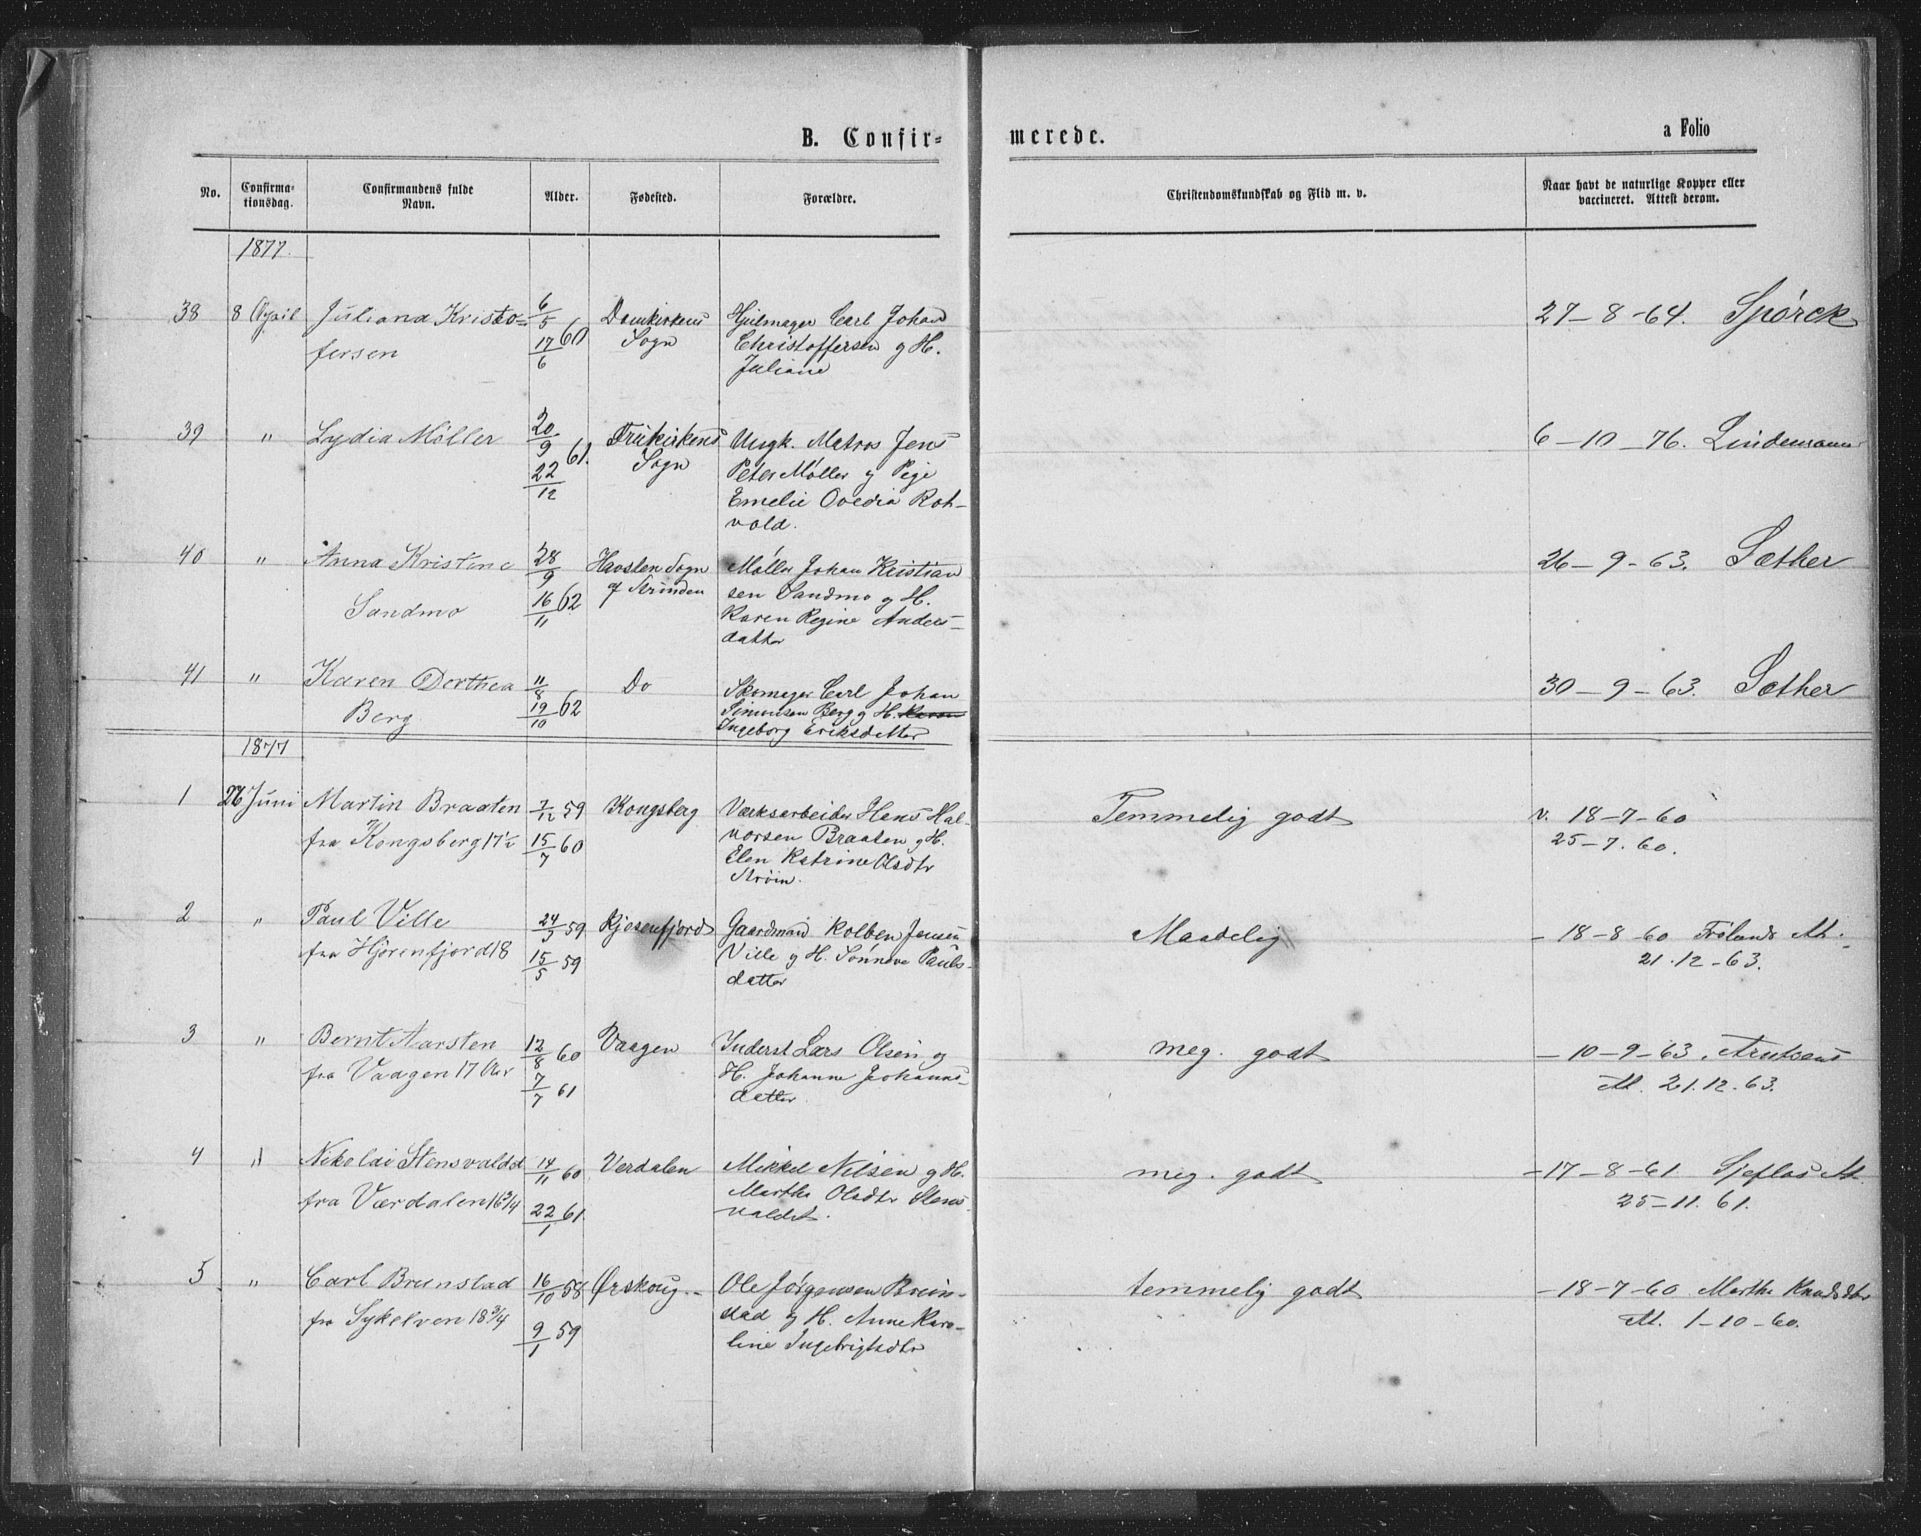 B. Confir=
merede.
a Folio
No.
Confirma-
tionsdag.
Confirmandens fulde
Navn.
Alder.
Fødested.
Forældre.
Christendomskundskab og Flid m. v.
Naar havt de naturlige Kopper eller
vaccineret. Attest derom.
1877.
38 8 April Juliana Kristo= 6/5 Domkirkens Hjulmager Carl Johan 27-8-64. Spørck
fersen 17/6 60 Sogn Christoffersen g H.
Juliane
39 " Lydia Möller 20/9 Fruekirkens Ungk. Matros Jens 6-10-76. Lindemann
22/12 61. Sogn Peter Møller g Pige
Emelie Ovedia Roh-
vold.
40 " Anna Kristine 28/9 Havsten Sogn Møller Johan Kristian 26-9-63. Sæther
Sandmo 16/11 62 af Strinden sen Sandmo g H.
Karen Regine Anders-
datter
41 " Karen Dorthea 11/8 Do Skomager Carl Johan 30-9-63. Sæther
Berg 19/10 62 Simonsen Berg g H. Karen
Ingeborg Eriksdatter
1877
1 26 Juni Martin Braaten 7/12 59 Kongsberg Værksarbeider Hans Hal- Temmelig godt v. 18-7-60
fra Kongsberg 17½ 15/7 60 vorsen Braaten g H. 25-7.60.
Elen Katrine Olsdtr
Strøm.
2 " Paul Ville 24/3 59 Kjosenfjord Gaardmand Kolben Jensen Maadelig - 18-8-60 At.
fra Hjörenfjord 18 15/5 59 Ville g H. Sønneve Pauls- 21.12-63.
datter
3 " Bernt Aarsten 12/8 60 Vaagen Inderst Lars Olsen g meg. godt - 10-9-63
fra Vaagen 17 Aar 7/7 61 H. Johanne Johanns- At. 21.12.63.
datter
4 " Nikolai Stensvaldd 14/11 60 Verdalen Mikkel Nilsen g H. meg. godt -17-8-61. At.
fra Værdalen 16¾ 22/1 61. Martha Olsdtr Stens- 25-11.61.
valdet.
5 " Carl Brunstad 16/10 58 Ørskoug - Ole Jørgensen Brun- temmelig godt -18-7-60 Marthe Knudsdtr
fra Sykelven 18¾ 9/1 59 stad g H. Anne Karo- At. 1-10-60.
line Ingebrigtsdtr